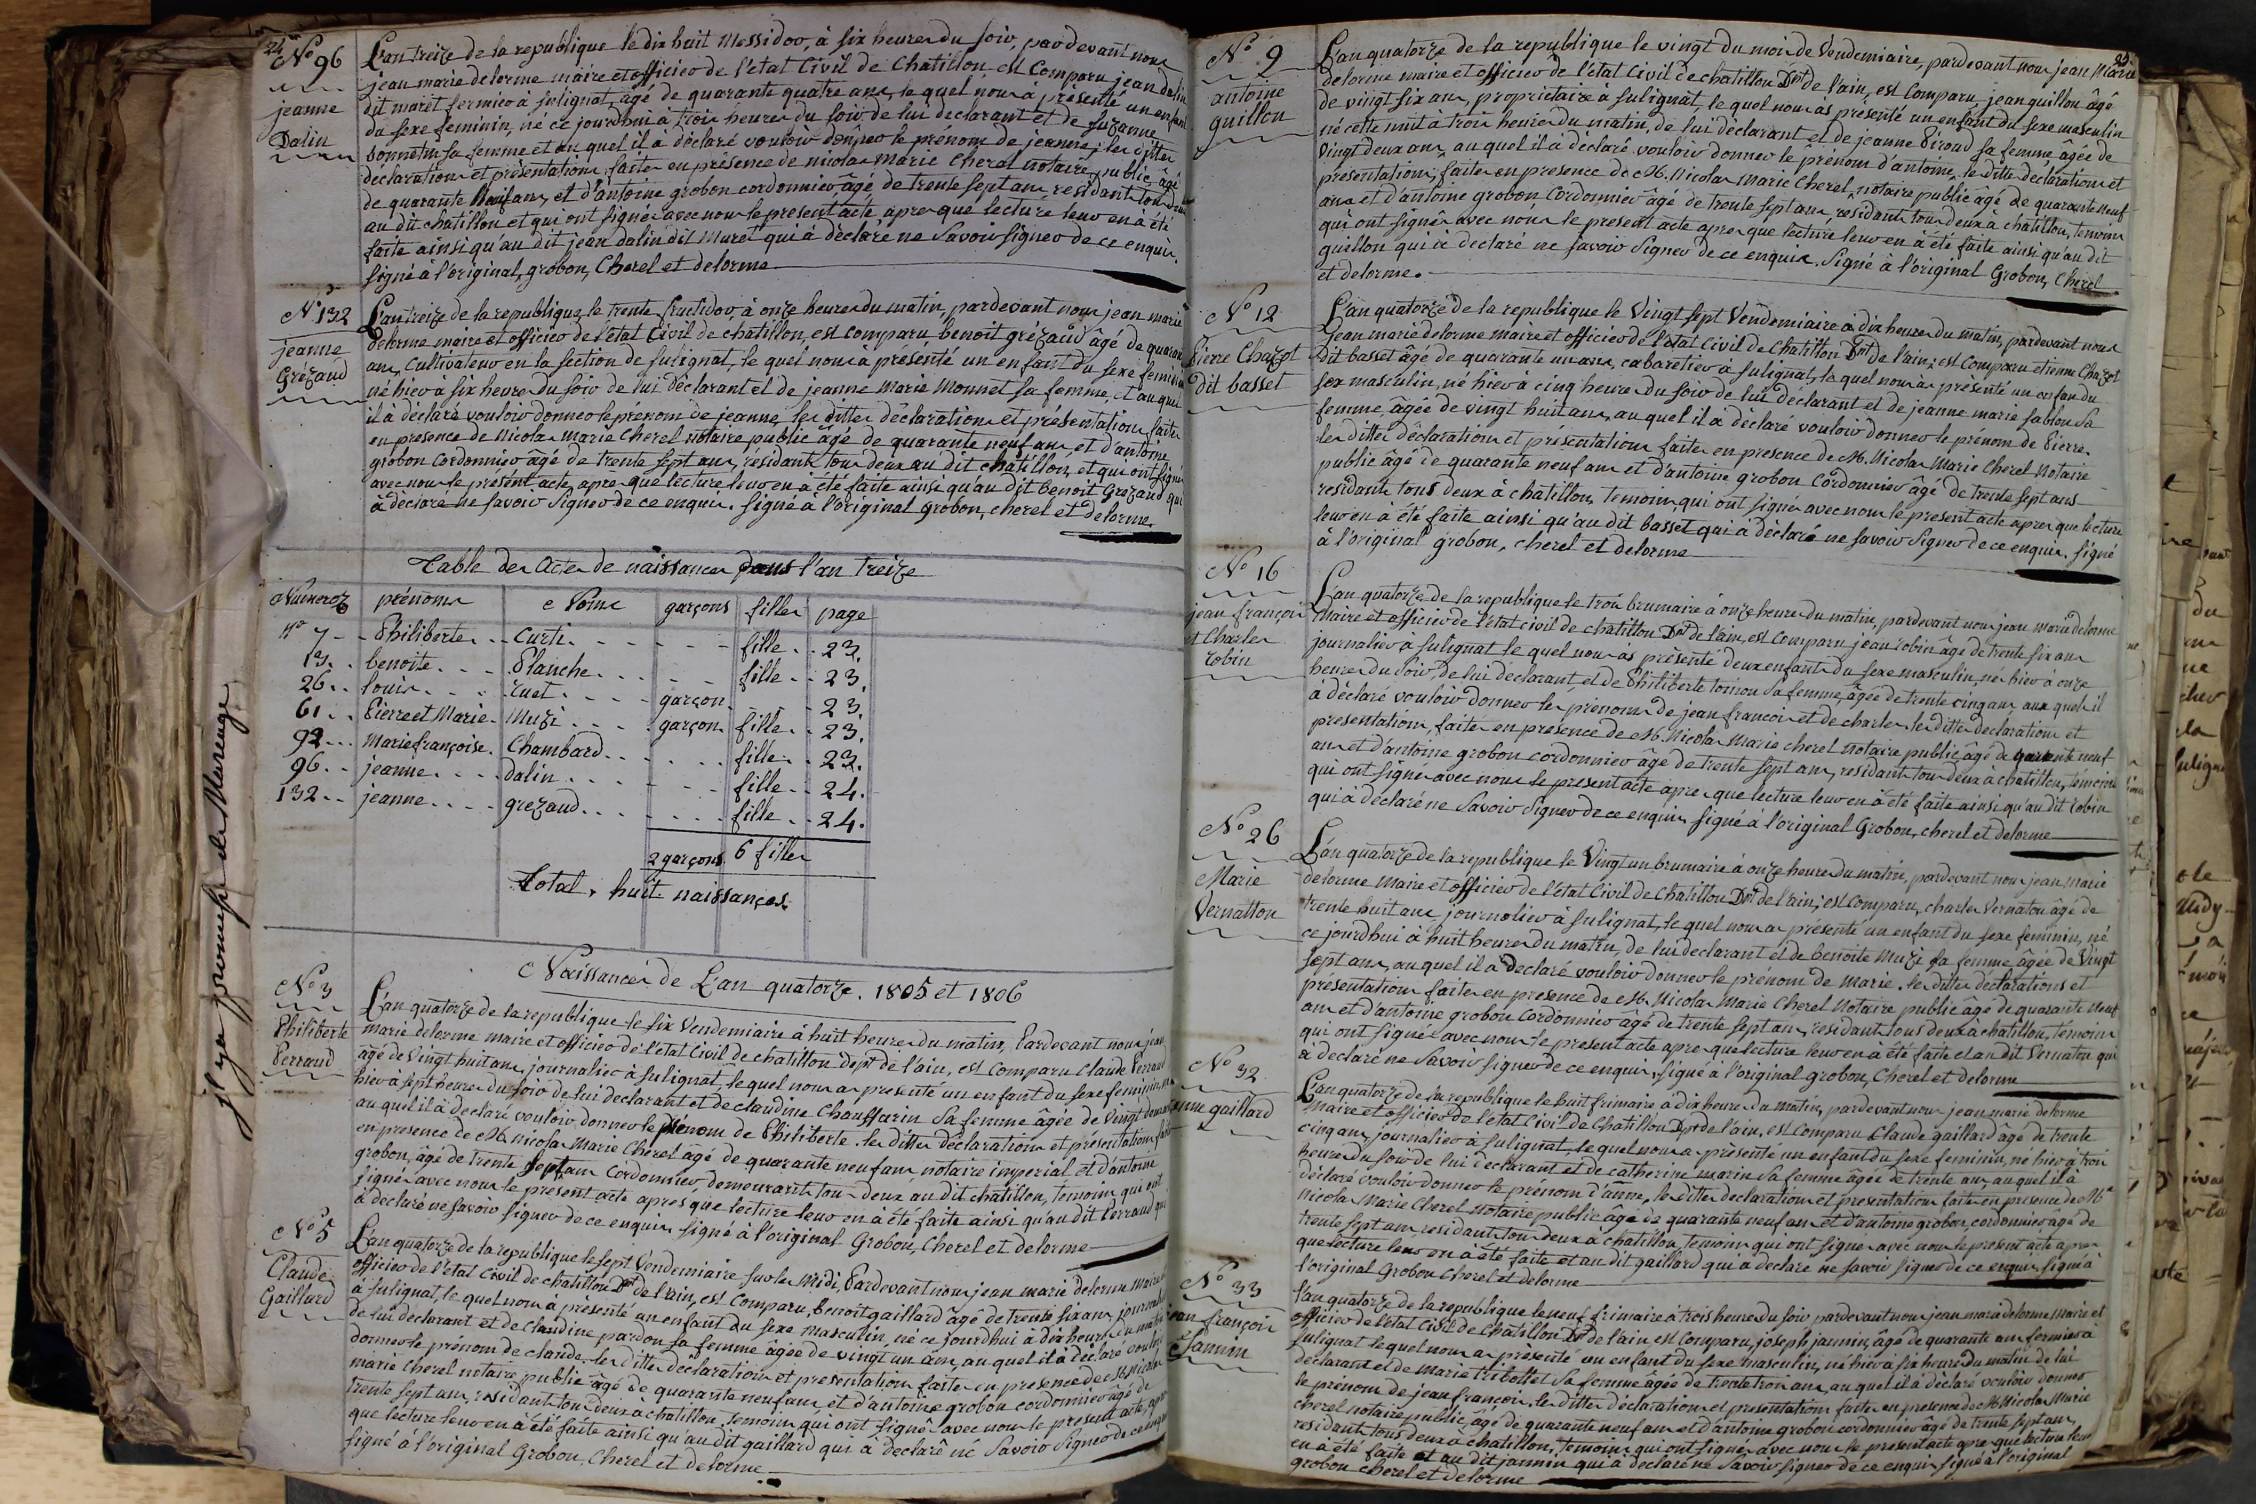 24
N° 96
jeanne
Dalin
L'an treize de la republique le dix huit Messidor, à six heures du soir, pardevant nous
jean marie delorme maire et officier de l'etat Civil de Chatillon est Comparu jean dalin
dit muret fermier à sulignat, âgé de quarante quatre ans, le quel nous a présenté un enfant
du sexe feminin, né ce jourdhui à trois heures du soir de lui declarant et de suzanne
sa femme et au quel il à déclaré vouloir donner le prénom de jeanne; les dittes
déclaration et présentation faites en présence de nicolas Marie Cherel notaire public âgé
de quarante neuf ans, et d'antoine grobon cordonnier âgé de trente sept ans résidant tous deux
au dit chatillon et qui ont signé avec nous le present acte, apres que lecture leur en à été
faite ainsi qu'au dit jean dalin dit Muret qui à déclaré ne Savoir signer de ce enquis.
signé à l'original, grobon, Cherel et delorme
N° 132
jeanne
Grézaud
L'an treize de la republique, le trente fructidor, à onze heures du matin, pardevant nous jean marie
delorme maire et officier de l'état Civil de chatillon, est comparu, benoit grézaud âgé de quarante
ans, Cultivateur en la section de sulignat, le quel nous a présenté un enfant du sexe feminin
né hier à six heures du soir de lui déclarant et de jeanne Marie Monnet sa femme, et au quel
il à déclaré vouloir donner le prénom de jeanne, les dittes déclaration et présentation faites
en presence de Nicolas Marie Cherel notaire public âgé de quarante neuf ans, et d'antoine
grobon Cordonnier âgé de trente sept ans, résidant tous deux au dit chatillon, et qui ont signé
avec nous le présent acte, apres que lecture leur en à été faite ainsi qu'au dit benoit Grezaud qui
à déclaré ne savoir Signer de ce enquis. signé à l'original Grobon, cherel et delorme.
Table des Actes de naissances dans l'an treize
Numeros prénoms Noms garçons filles page
n° 7 Philiberte Curti fille 23.
13 benoite Planche fille 23.
26 louis ruet garçon 23.
61 Pierre et Marie Muzi garçon fille 23.
92 Marie françoise Chambard fille 23.
96 jeanne dalin fille 24.
132 jeanne grezaud fille 24.
2 garçons 6 filles
Total, huit naissances.
Naissances de L'an quatorze. 1805 et 1806
N° 3
Philiberte
Perraud
L'an quatorze de la republique le six Vendemiaire à huit heures du matin, Pardevant nous jean
marie delorme maire et officier de l'etat Civil de chatillon dept de l'ain, est Comparu Claude Perraud
âgé de Vingt huit ans, journalier à sulignat, le quel nous a presenté un enfant du sexe feminin, né
hier à sept heures du soir de lui declarant et de claudine Chauffarin Sa femme âgée de Vingt deux ans
au quel il à declaré vouloir donner le prénom de Philiberte. les dittes Déclaration et présentation faites
en presence de M. Nicolas Marie Cherel âgé de quarante neuf ans, notaire imperial et d'antoine
grobon, âgé de trente sept ans Cordonnier, demeurant tous deux au dit chatillon, témoins qui ont
signé avec nous le present acte apres que lecture leur en à été faite ainsi qu'au dit Perraud qui
à déclaré ne savoir signer de ce enquis signé à l'original Grobon, Cherel et delorme
N° 5
Claude
Gaillard
L'an quatorze de la republique le sept Vendemiaire sur les Midi, Pardevant nous jean marie delorme Maire et
officier de l'etat Civil de chatillon Dpt de l'ain, est Comparu, Benoit gaillard âgé de trente six ans journalier
à sulignat, le quel nous à présenté un enfant du sexe masculin, né ce jourdhui à dix heures du matin
de lui déclarant et de claudine pardon sa femme âgée de vingt un ans, au quel il à déclaré vouloir
donner le prénom de claude. les dittes déclaration et présentation faites en presence de M. Nicolas
marie Cherel notaire public âgé de quarante neuf ans, et d'antoine grobon cordonnier âgé de
trente sept ans, residant tous deux à chatillon, temoins qui ont signé avec nous le present acte, apres
que lecture leur en à été faite ainsi qu'au dit gaillard qui à déclaré né Savoir Signer de ce enquis
signé à l'original Grobon, Cherel et delorme
il y a promesse de Mariage
25.
N° 9
antoine
guillon
L'an quatorze de la republique le vingt du mois de Vendemiaire, pardevant nous jean Marie
delorme maire et officier de l'état Civil de chatillon Dpt de l'ain, est Comparu, jean guillon âgé
de vingt six ans, propriétaire à sulignat, le quel nous às présenté un enfant du sexe masculin
né cette nuit à trois heures du matin, de lui déclarant et de jeanne Piroud sa femme âgée de
vingt deux ans, au quel il à déclaré vouloir donner le prénom d'antoine, les dittes déclaration et
présentation, faites en presence de M. Nicolas Marie Cherel, notaire public âgé de quarante neuf
ans et d'antoine grobon, Cordonnier âgé de trente sept ans, résidant tous deux à chatillon, temoins
qui ont signé avec nous le present acte apres que lecture leur en à été faite ainsi qu'au dit
guillon qui à déclaré ne savoir Signer de ce enquis. Signé à l'original Grobon, Cherel
et delorme.
N° 12
Pierre Chazot
Dit basset
L'an quatorze de la republique le Vingt sept Vendemiaire à dix heures du matin, pardevant nous
Jean marie delorme maire et officier de l'etat Civil de Chatillon Dpt de l'ain, est Comparu etienne Chazot
Dit basset âgé de quarante un ans, cabaretier à sulignat, le quel nous às présenté un enfan du
sex masculin, né hier à cinq heures du soir de lui déclarant et de jeanne marie sablon Sa
femme, âgée de vingt huit ans, au quel il à déclaré vouloir donner le prénom de Pierre.
les dittes déclaration et présentation faites en presence de M. Nicolas Marie Cherel Notaire
public âgé de quarante neuf ans et d'antoine grobon Cordonnier âgé de trente sept ans
residants tous deux à chatillon, temoins, qui ont signé avec nous le present acte apres que lecture
leur en à été faite ainsi qu'au dit basset qui à déclaré ne savoir Signer de ce enquis. signé
à l'original grobon, cherel et delorme
N° 16
jean françois
et Charles
robin
L'an quatorze de la republique le trois brumaire à onze heures du matin, pardevant nous jean marie delorme
Maire et officier de l'état civil de chatillon Dpt de l'ain, est comparu jean robin âgé de trente six ans
journalier à sulignat le quel nous às présenté deux enfants du sexe masculin, nés hier à onze
heures du soir, de lui déclarant, et de Philiberte Sa femme, âgée de trente cinq ans aux quels il
à déclaré vouloir donner les prénoms de jean françois et de charles, les dittes declaration et
presentation, faites en presence de M. Nicolas Marie cherel notaire public âgé de quarante neuf
ans et d'antoine grobon cordonnier âgé de trente sept ans, residant tous deux à chatillon, témoins
qui ont signé avec nous le present acte apres que lecture leur en à été faite ainsi qu'au dit robin
qui à déclaré ne Savoir Signer de ce enquis signé à l'original Grobon, cherel et delorme
N° 26
Marie
Vernatton
L'an quatorze de la republique le Vingt un brumaire à onze heures du matin, pardevant nous jean Marie
delorme Maire et officier de l'état Civil de Chatillon Dpt de l'ain, est Comparu, charles Vernaton âgé de
trente huit ans journalier à Sulignat, le quel nous a présenté un enfant du sexe feminin, né
ce jourdhui à huit heures du matin, de lui declarant et de Benoite Muzi sa femme âgée de Vingt
sept ans, au quel il a Declaré vouloir donner le prénom de Marie. les dittes déclarations et
présentation faites en presence de M. Nicolas Marie Cherel Notaire public âgé de quarante neuf
ans et d'antoine grobon Cordonnier âgé de trente sept ans, residant tous deux à chatillon, témoins
qui ont signé avec nous le present acte apres que lecture leur en à été faite et au dit Vernaton qui
à déclaré ne Savoir signer de ce enquis, signé à l'original grobon, Cherel et delorme
N° 32
anne gaillard
L'an quatorze de la republique le huit frimaire à dix heures du matin, pardevant nous jean marie delorme
Maire et officier de l'état Civil de Chatillon Dpt de l'ain, est comparu Claude gaillard âgé de trente
cinq ans, journalier à sulignat, le quel nous a présenté un enfant du sexe feminin, né hier à trois
heures du soir de lui declarant et de catherine marin sa femme âgée de trente ans, au quel il à
déclaré vouloir donner le prénom d'anne, les dittes declaration et presentation faites en presence de M.
Nicolas Marie Cherel Notaire public âgé de quarante neuf ans et d'antoine grobon, cordonnier âgé de
trente sept ans residant tous deux à chatillon, temoins qui ont signé avec nous le present acte apres
que lecture leur en à été faite et au dit gaillard qui à declaré ne savoir signer de ce enquis signé à
l'original Grobon Cherel et delorme
N° 33
jean françois
Jannin
l'an quatorze de la republique le neuf frimaire à trois heures du soir pardevant nous jean marie delorme Maire et
officier de l'etat Civil de Chatillon Dpt de l'ain est Comparu, joseph jannin, âgé de quarante ans fermier à
Sulignat lequel nous a présenté un enfant du sexe masculin, né hier à six heures du matin de lui
déclarant et de Marie tribollet Sa femme âgée de trente trois ans, au quel il à déclaré vouloir donner
le prénom de jean françois. les dittes déclaration et presentation faites en presence de M. Nicolas Marie
cherel notaire public, âgé de quarante neuf ans et d'antoine grobon cordonnier âgé de trente sept ans,
residant tous deux à chatillon, temoins qui ont signé avec nous le present acte apres que lecture leur
en à été faite et au dit jannin qui à déclaré ne Savoir signer de ce enquis signé à l'original
grobon cherel et delorme